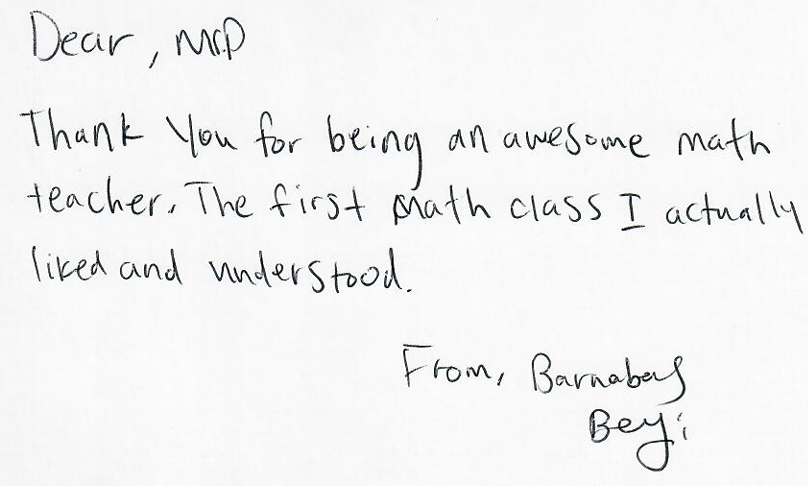 Dear, Mr.P
Thank You for being an awesome math
teacher. The first math class I actually
liked and understood.
From, Barnabas
Beyi